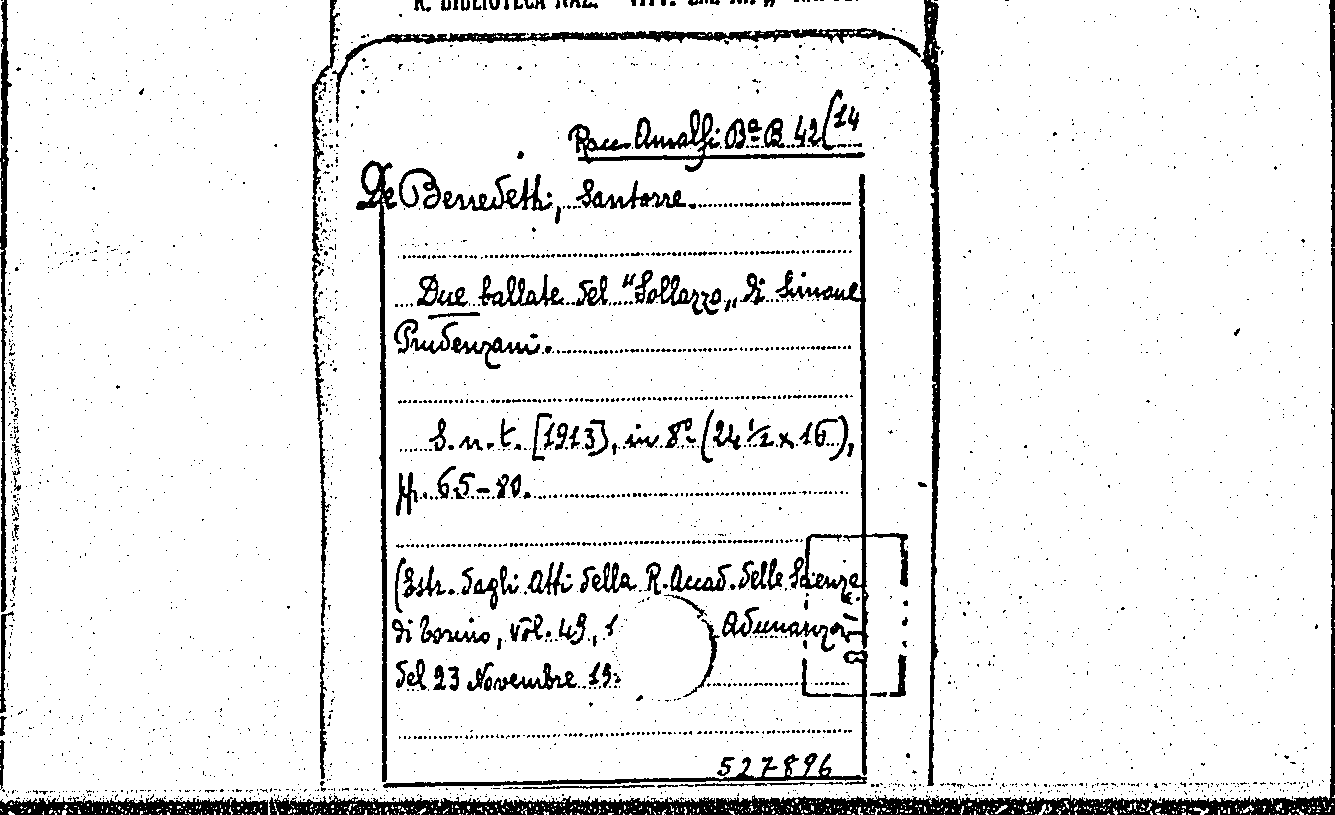 R. BIBLIOTECA NAZ. "VITT. EM. III„ NAPOLI
Racc. Amalfi Bª B 42(14
De Benedetti, Santorre.
Due ballate del "Sollazzo„ di Simone
Prudenzani.
S. n. t. [1913], in 8º (24 ½ x 16),
pp. 65-80.
(Estr. dagli Atti della R. Accad. delle Scienze
di Torino, vol. 49, Adunanza
del 23 Novembre 19
527896